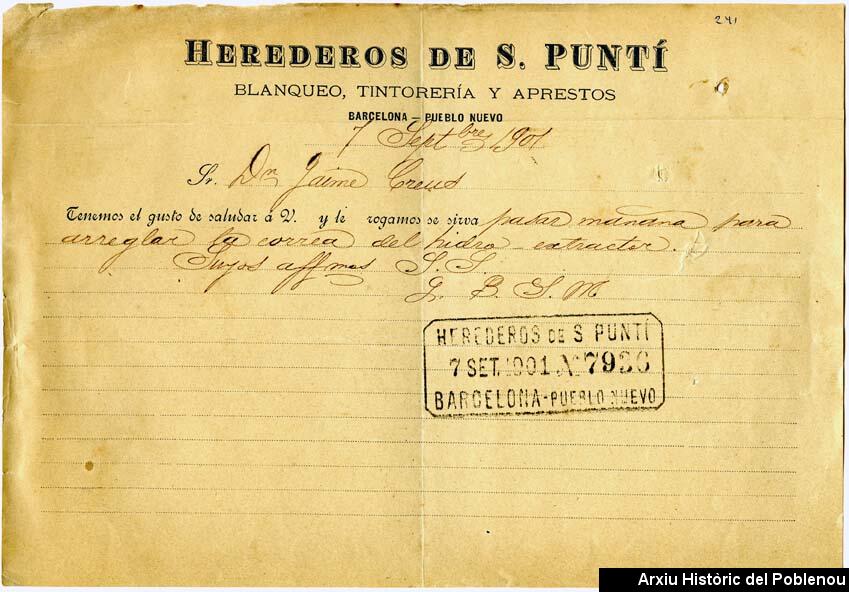 241
HEREDEROS DE S. PUNTÍ
BLANQUEO, TINTORERÍA Y APRESTOS
BARCELONA – PUEBLO NUEVO
7 Septbre 1901
Sr. Dn Jaime Creus
Tenemos el gusto de saludar á V. y le rogamos se sirva pasar mañana para
arreglar la correa del hidro-extracter.
Suyos affmos S. S.
Q. B. S. M
HEREDEROS DE S PUNTÍ
7 SET. 1901 No 7936
BARCELONA-PUEBLO NUEVO
Arxiu Històric del Poblenou